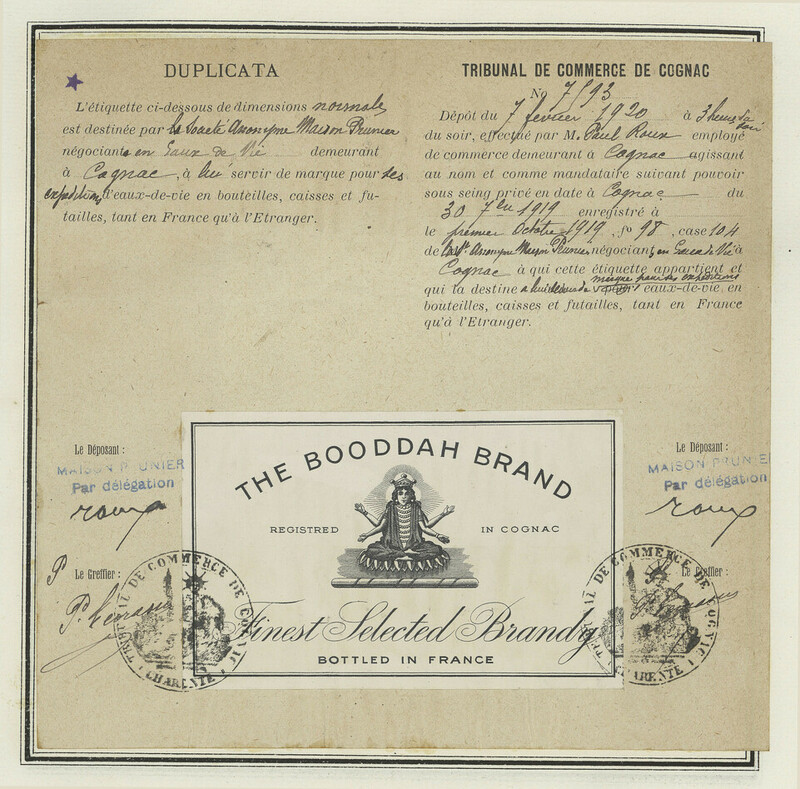 DUPLICATA
L'étiquette ci-dessous de dimensions normales
est destinée par la Société Anonyme Maison Prunier
négociants en Eaux de Vie demeurant
à Cognac, à lui servir de marque pour ses
expéditions d'eaux-de-vie en bouteilles, caisses et fu-
tailles, tant en France qu'à l'Etranger.
TRIBUNAL DE COMMERCE DE COGNAC
No 7593
Dépôt du 7 fevrier 1920 à 3 heures du
soir
du soir, effectué par M. Paul Roux employé
de commerce demeurant à Cognac agissant
au nom et comme mandataire suivant pouvoir
sous seing privé en date à Cognac du
30 7bre 1919 enregistré à
le premier Octobre 1919, fo 98, case 104
de la Sté Anonyme Maison Prunier négociant en Eaux de Vie à
Cognac à qui cette étiquette appartient et
marque pour ses expéditions
qui la destine à lui servir de eaux-de-vie, en
bouteilles, caisses et futailles, tant en France
qu'à l'Etranger.
Le Déposant :
MAISON PRUNIER
Par délégation
roux
Le Greffier :
TRIBUNAL DE COMMERCE DE COGNAC
CHARENTE
THE BOODDAH BRAND
REGISTRED IN COGNAC
Finest Selected Brandy
BOTTLED IN FRANCE
Le Déposant :
MAISON PRUNIE
Par délégation
roux
Le Greffier :
TRIBUNAL DE COMMERCE DE COGNAC
CHARENTE